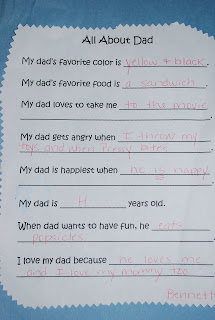 All About Dad
My dad's favorite color is yellow & black.
My dad's favorite food is a sandwich.
My dad loves to take me to the movie
My dad gets angry when I throw my
toys and when Presley bites
My dad is happiest when he is happy
My dad is H years old.
When dad wants to have fun, he eats
popsicles
I love my dad because he loves me
and I love my mommy too
Bennett